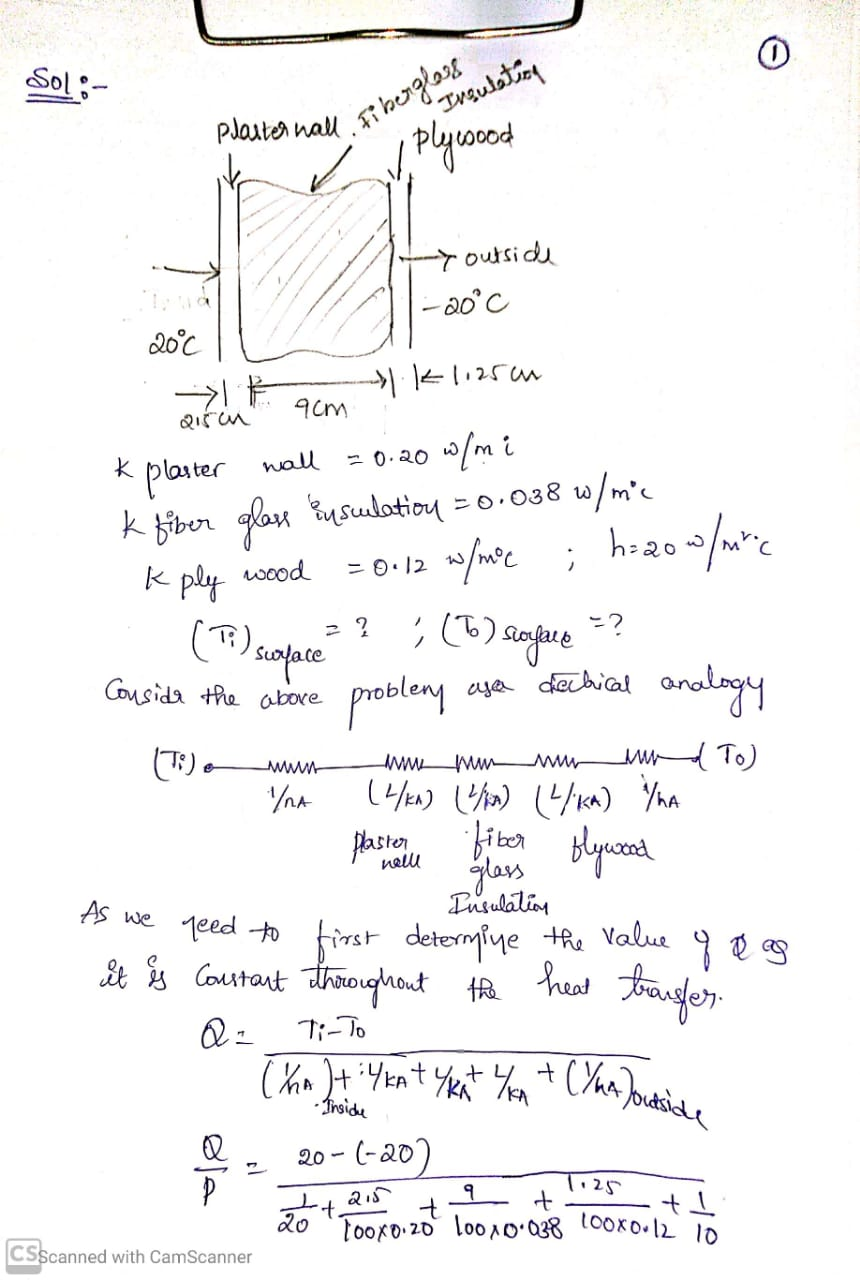 ①
Sol :-
Plaster wall
Fiberglass
Insulation
plywood
outside
-20°C
20°C
2.5 cm
9cm
1.25 cm
K plaster wall = 0.20 w/m
k fiber glass insulation = 0.038 w/m°c
K ply wood = 0.12 w/m°c ; h=20 w/m²°c
(Ti) surface = ? ; (To) surface = ?
Consider the above problem as a electrical analogy
(Ti) (To)
1/hA (L/KA) (L/KA) (L/KA) 1/hA
plaster wall
fiber glass Insulation
plywood
As we need to first determine the value of Q as
it is Constant throughout the heat transfer.
Q = Ti-To / (1/hA)Inside + L/KA + L/KA + L/KA + (1/hA)outside
Q/A = 20-(-20) / 1/20 + 2.5/100x0.20 + 9/100x0.038 + 1.25/100x0.12 + 1/10
CS Scanned with CamScanner